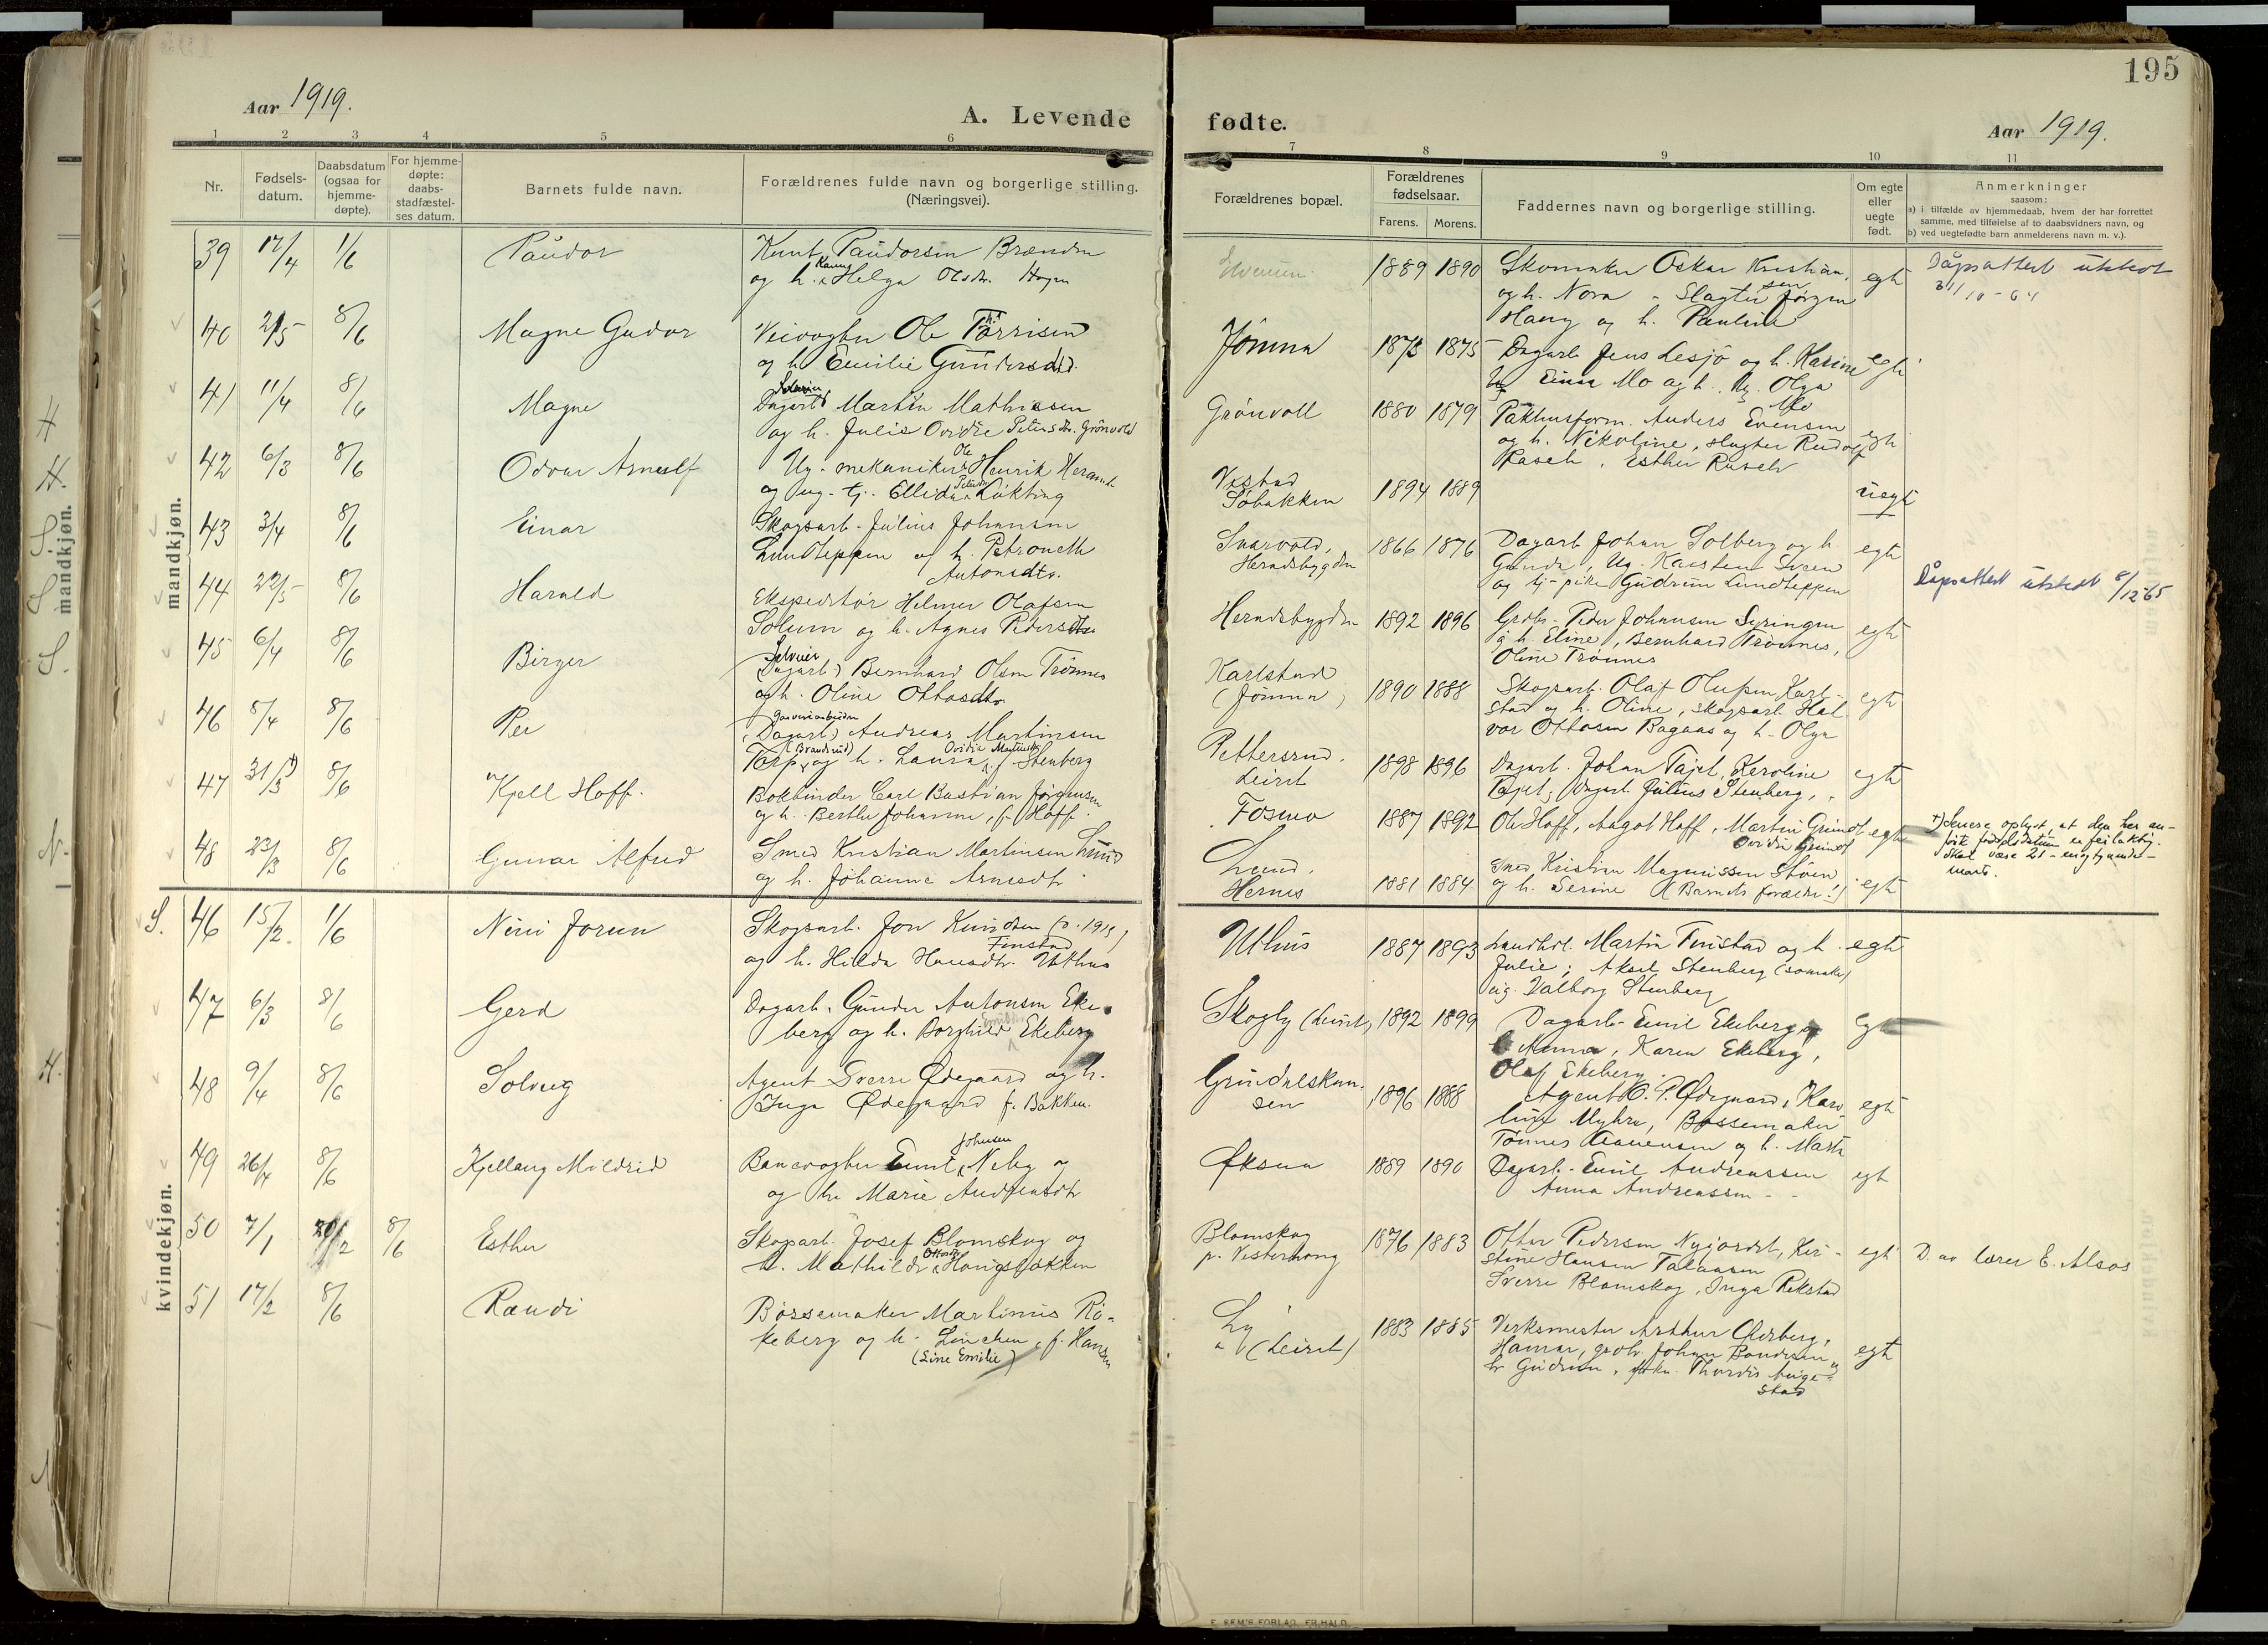 195
Aar 1919.
A. Levende
fødte.
Aar 1919.
1 2 3 4 5 6
7 8 9 10 11
Nr.
Fødsels-
datum.
Daabsdatum
(ogsaa for
hjemme-
døpte).
For hjemme-
døpte:
daabs-
stadfæstel-
ses datum.
Barnets fulde navn.
Forældrenes fulde navn og borgerlige stilling.
(Næringsvei).
Forældrenes bopæl.
Forældrenes
fødselsaar.
Farens. Morens.
Faddernes navn og borgerlige stilling.
Om egte
eller
uegte
født.
Anmerkninger
saasom:
a) i tilfælde av hjemmedaab, hvem der har forrettet
samme, med tilføielse af to daabsvidners navn, og
b) ved uegtefødte barn anmelderens navn m. v.).
mandkjøn.
mandkjøn.
39 17/4 1/6 Paudor
Knut Paudorsen Brænden
og h. Helga Olsdtr. Hagen
1889 1890
Skomaker Oskar Kristian-
sen
og h. Nora - Slagter Jørgen
Haug og h. Pauline
egt
Dåpsattest utstedt
31/10-64
40 2/5 8/6 Magne Gudor
Veivogter Ole Thorrisen
og h. Emilie Gundersdtr.
Jømna
1873 1875
Dagarb. Jens Lesjø og h. Karine
Einar Mo og h. Olga
Mo
egt
41 11/4 8/6 Magne
Dagarb Martin Mathisen
og h. Julie Ovidie Petersdtr. Grønvold
Grønvoll
1880 1879
Pakhusform. Anders Evensen
og h. Nikoline, slagter Rudolf
Rasch, Esther Rasch
egt
42 6/3 8/6 Odvar Arnulf
Ole
Ug. mekaniker Henrik
og ug. tj. Ellida Løkting
Søbakken
1894 1889
uegt
43 3/4 8/6 Einar
Skogsarb. Julius Johansen
Lundteppen og h. Petronelle
Antonsdtr.
Herndsbygden
1866 1876
Dagarb Johan Solberg og h.
Gunda, Ug. Karsten Sveen
og tj-pike Gudrun Lundteppen
egt
44 22/5 8/6 Harald
Ekspeditør Helmer Olafsen
Solum og h. Agnes Pedersdtr.
Herndsbygden
1892 1896
Grdbr. Peder Johansen Syringen
og h. Eline, Bernhard Trønnes,
Oline Trønnes
egt
Dåpsattest utstedt 8/12-65
45 6/4 8/6 Birger
(Dagarb.) Bernhard Olsen Trønnes
og h. Oline Ottosdtr.
Karlstad
(Jømna)
1890 1888
Skogsarb. Olaf Olufsen Karl-
stad og h. Oline, skogsarb. Hal-
vor Ottosen Bagaas og h. Olga
egt
46 8/4 8/6 Per
(Dagarb.) Andreas Martinsen
(Brandrud) Ovidie
Torp og h. Laura f. Stenberg
Pettersrud.
Leiret
1898 1896
Dagarb. Johan Tajet, Karoline
Tajet, Dagarb Julius Stenberg,
egt
47 31/3 8/6 Kjell Hoff.
Bokbinder Carl Bastian Jørgensen
og h. Berthe Johanne, f. Hoff.
Fosmo
1887 1892
Ole Hoff, Aagot Hoff, Martin Grindt
Ovidie Grindt
egt
+) Senere oplyst, at den her an-
førte fødselsdatum er feilaktig.
Skal være 21 - enogtyvende -
mars.
48 23/3 8/6 Gunnar Alfred
Smed Kristian Martinsen Lund
og h. Johanne Arnesdtr.
Lund.
Hernes
1881 1884
Smed Kristian Magnussen Støen
og h. Serine (Barnets forældre!)
egt
kvindekjøn.
S. 46 15/2 1/6 Nini Jorun
Skogsarb. Jon Knudsen
Finstad
og h. Hilda Hansdtr. Uthus
Uthus
1887 1893
Landhdl. Martin Finstad og h.
Julie; Aksel Stenberg
ug. Valborg Stenberg
egt
47 6/3 8/6 Gerd
Dagarb. Gunder Antonsen Eke-
berg og h. Borghild Ekeberg
Skogly (Leiret)
1892 1899
Dagarb. Emil Ekeberg og
h. Anna, Karen Ekeberg,
Olaf Ekeberg
egt
48 9/4 8/6 Solveig
Agent Sverre Ødegaard og h.
Inga Ødegaard f. Bakken.
1896 1888
Agent O. P. Ødegaard, Karo-
line Myhre, Bøssemaker
Tønnes Aanensen og h. Marta
egt
49 26/4 8/6 Kjellaug Mildrid
Johnsen
Banevogter Emil Neby og
og h. Marie Andreasdtr
Øksna
1889 1890
Dagarb. Emil Andreassen
Anna Andreassen
egt
50 7/1 8/6 Esther
Skogarb. Josef Blomskog og
Ottosdtr.
h. Mathilde Haugsbakken
Blomskog
p. Vesterhaug
1876 1883
Otter Pedersen Nyjordet, Kri-
stine Hansen
Sverre Blomskog, Inga Rekstad
egt
D. av lærer E. Alsos
51 17/2 8/6 Randi
Bøssemaker Martinus Rø-
keberg og h. Linchen, f. Hansen
(Line Emilie)
Ly
(Leiret)
1883 1885
Verksmester Arthur Ekeberg,
Hamar, grdbr. Johan Bondesen og
h. Gudrun, frkn. Thordis Auge-
stad
egt
E. SEM'S FORLAG, FR.HALD.